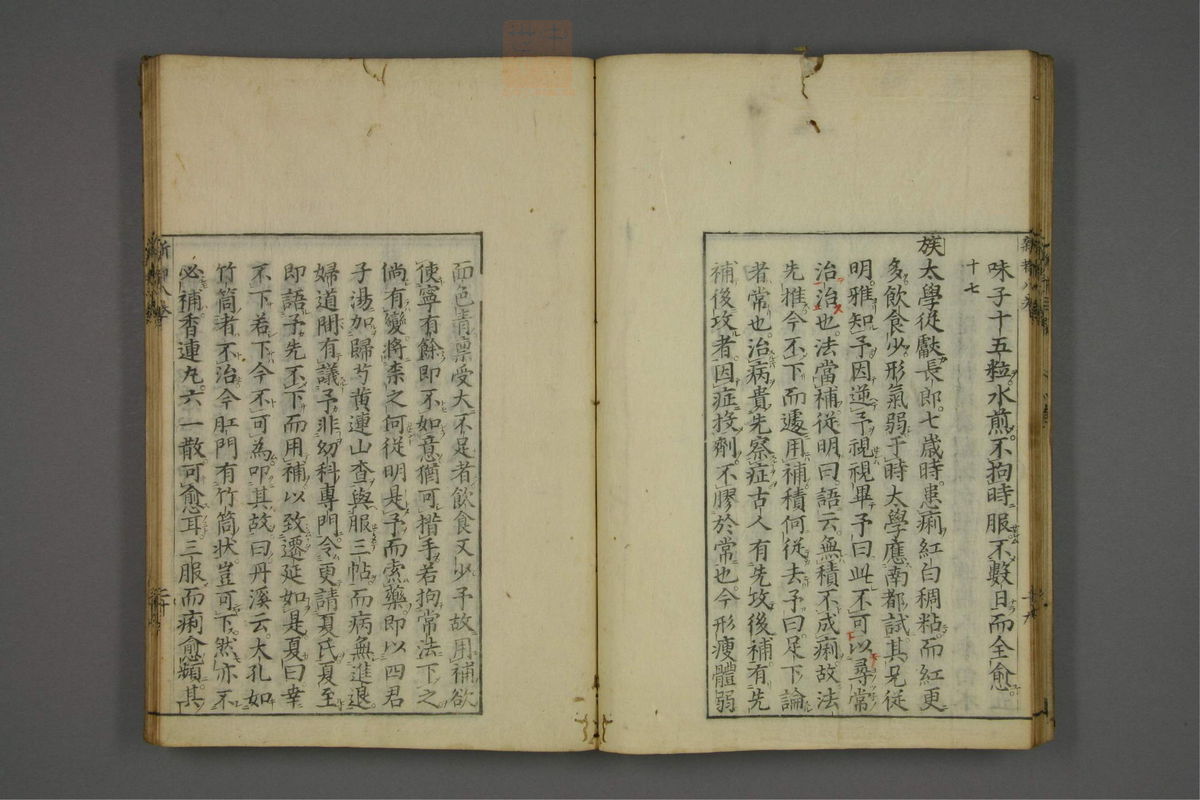 味子十五粒水煎不拘時服不數日而全愈
十七
族太學從獻長郎七歲時患痢紅白稠粘而紅更
多飲食少形氣弱于時大學應南都試其兄從
明雅知予因逆予視視畢予曰此不可以尋常
治治也法當補從明曰語云無積不成痢故法
先推今不下而遽用補積何從去予曰足下論
者常也治病貴先察症古人有先攻後補有先
補後攻者因症投劑不膠於常也今形瘦體弱
面色青稟受大不足者飲食又少予故用補欲
使寧有餘即不如意猶可措手若拘常法下之
倘有變將柰之何從明是予而索藥即以四君
子湯加歸芍黃連山查與服三帖而病無進退
婦道閒有議予非幼科專門令更請夏氏夏至
即語予先不下而用補以致遷延如是夏曰幸
不下若下今不可為叩其故曰丹溪云大孔如
竹筒者不治今肛門有竹筒狀豈可下然亦不
必補香連丸六一散可愈耳三服而痢愈頻其